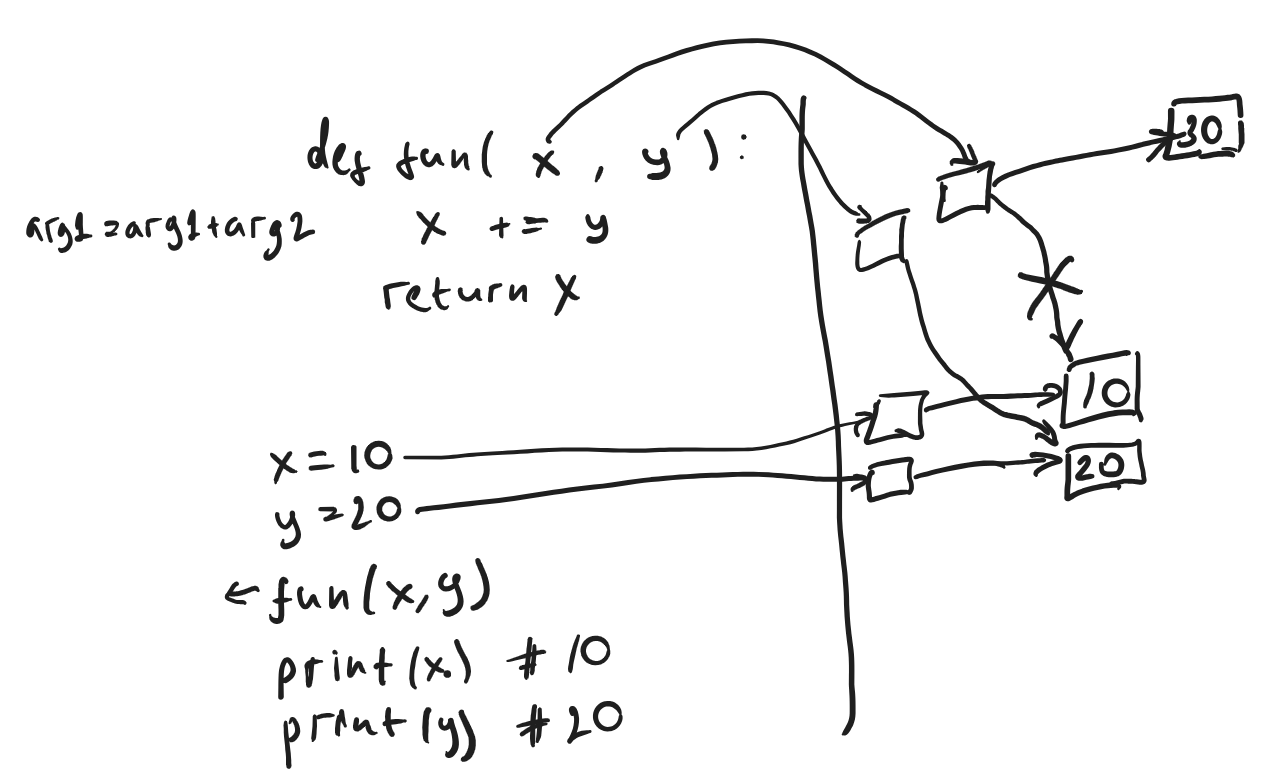 def fun( x , y ) :
30
arg1=arg1+arg2 x += y
return x
10
x = 10
20
y = 20
← fun(x,y)
print(x) # 10
print(y) # 20